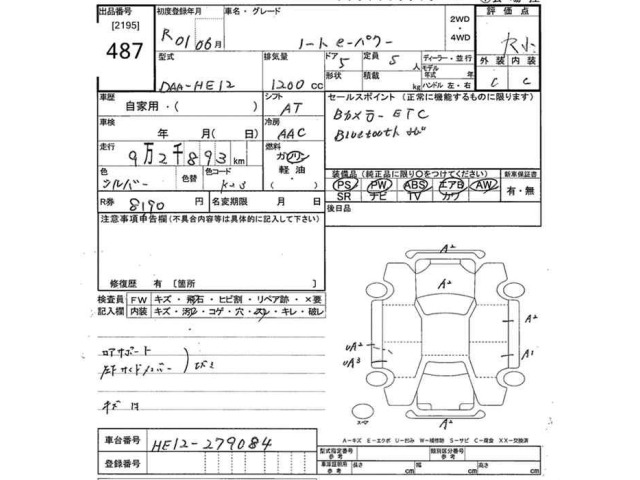 出品番号 初度登録年月 車名・グレード 2WD ・ 4WD 評価点
[2195]
487
R01 06月 ノートeーパワー
型式 排気量 ドア 形状 定員 積載 ディーラー・並行 モデル 年式 年 ハンドル 左・右 外装 内装
DAA-HE12 1200 CC 5 5 人 kg C C
車歴 シフト セールスポイント (正常に機能するものに限ります)
自家用・( ) AT
Bカメラー ETC
車検 冷房
年 月(日) AAC
Bluetooth
走行 燃料
9万2千893 km ガソリン 軽油
装備品(純正品に限り○をつけてください) 新車保証書
色 色替 色コード
シルバー K23
PS PW ABS エアB AW 有・無
SR ナビ TV カワ
R券 8190 円 名変期限 月 日 後日品
注意事項申告欄(不具合内容等は具体的に記入して下さい)
修復歴 有 [箇所 ]
検査員記入欄 FW キズ・飛石・ヒビ割・リペア跡・×要
内装 キズ・汚れ・コゲ・穴・スレ・キレ・破レ
A2
A2
A2
A1
UA2
UA3
A2
A2
A-キズ E-エクボ U-凹み W-補修跡 S-サビ C-腐食 XX-交換済
車台番号 HE12-279084
登録番号
型式指定番号 参考 類別区分番号 参考
車庫証明用 参考 長さ cm 幅 cm 高さ cm